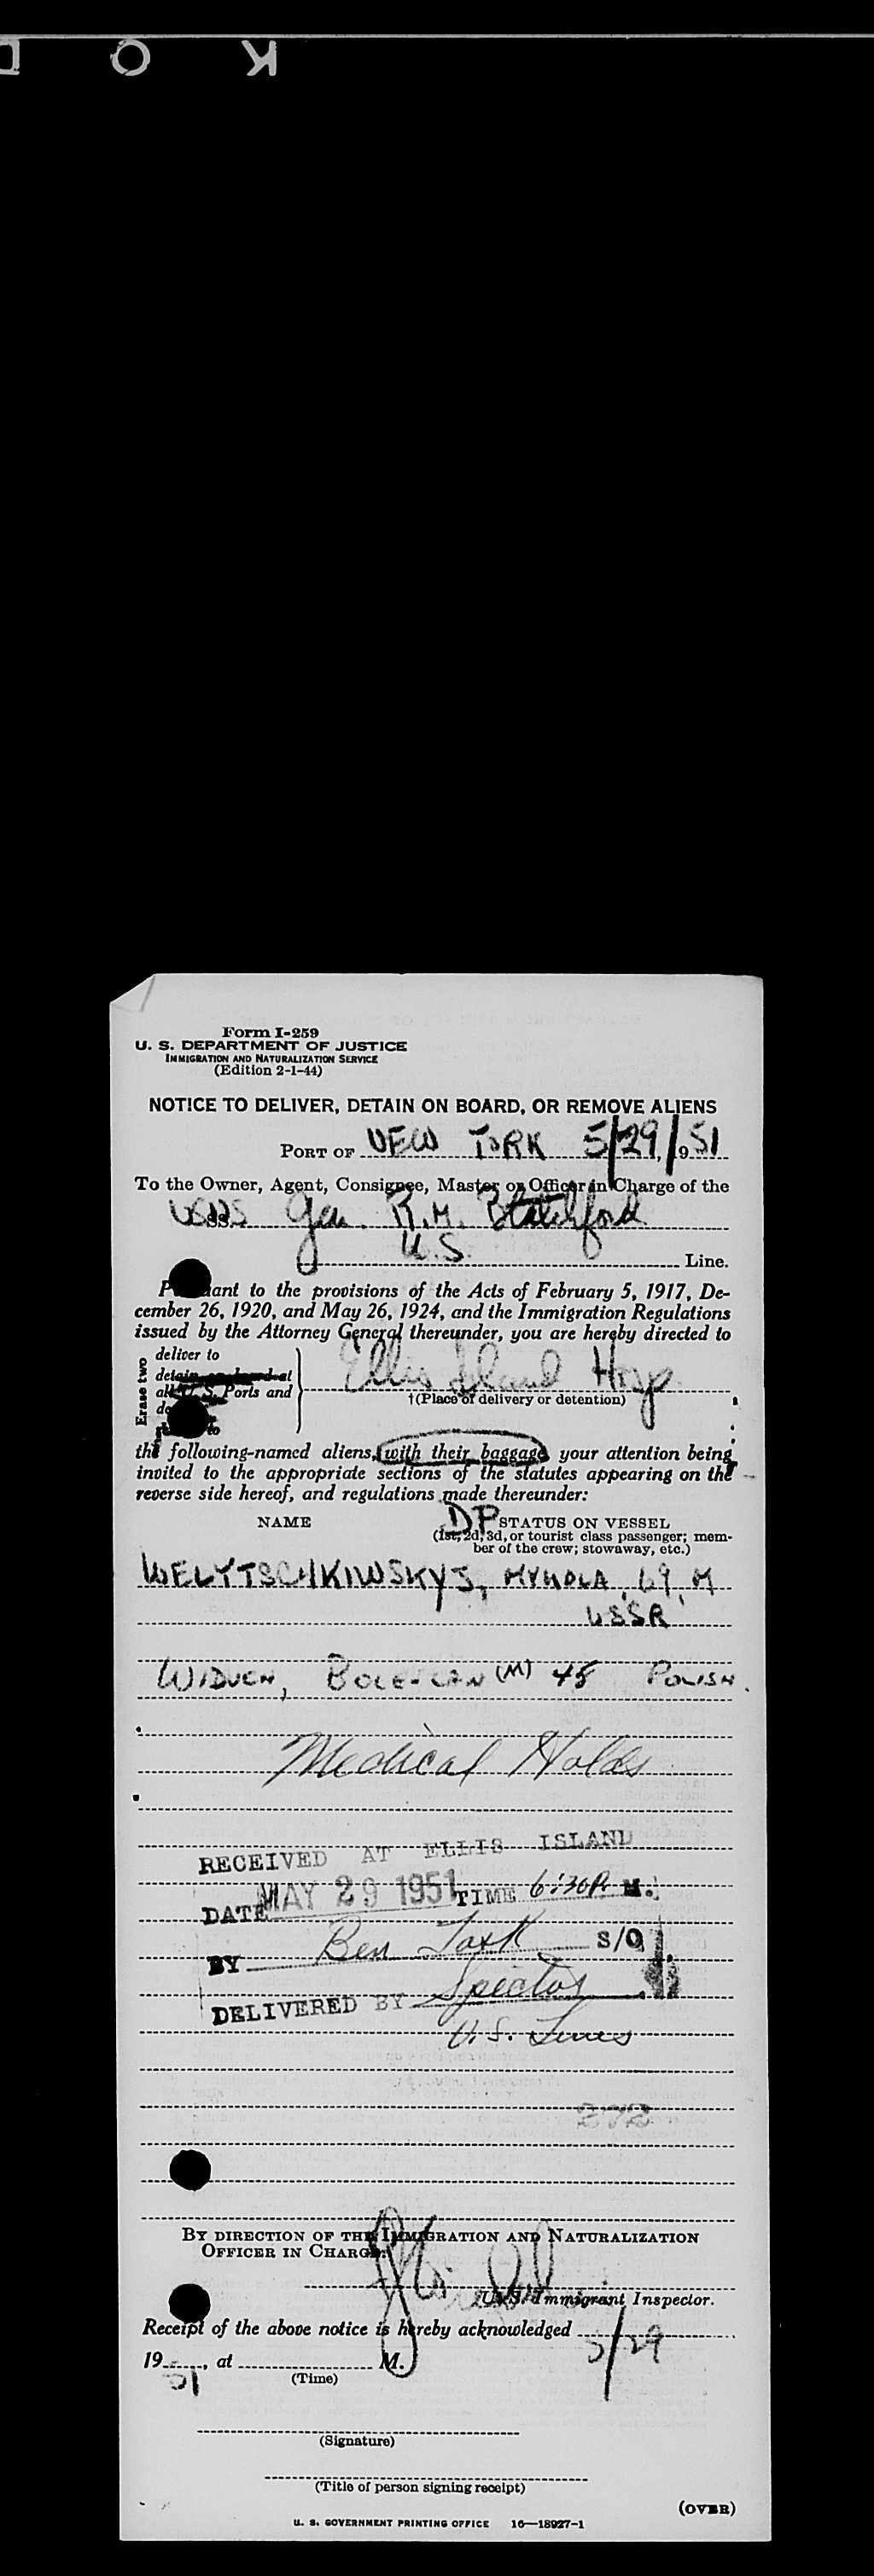 K O D
Form I-259
U. S. DEPARTMENT OF JUSTICE
IMMIGRATION AND NATURALIZATION SERVICE
(Edition 2-1-44)
NOTICE TO DELIVER, DETAIN ON BOARD, OR REMOVE ALIENS
PORT OF NEW YORK 5/29/1951
To the Owner, Agent, Consignee, Master or Officer in Charge of the
USNS Gen. R.M. Blatchford
U.S. Line.
Pursuant to the provisions of the Acts of February 5, 1917, De-
cember 26, 1920, and May 26, 1924, and the Immigration Regulations
issued by the Attorney General thereunder, you are hereby directed to
Erase two
deliver to
detain on board at
all U. S. Ports and
to
Ellis Island Hosp.
†(Place of delivery or detention)
the following-named aliens, with their baggage your attention being
invited to the appropriate sections of the statutes appearing on the
reverse side hereof, and regulations made thereunder:
NAME DP STATUS ON VESSEL
(1st, 2d, 3d, or tourist class passenger; mem-
ber of the crew; stowaway, etc.)
WELYTSCHKIWSKYJ, MYKOLA, 69, M
USSR
(M) 45 POLISH
Medical Holds
RECEIVED AT ELLIS ISLAND
DATE MAY 29 1951 TIME 6:30 P. M.
BY Ben S/O
DELIVERED BY Spector
U.S. Lines
272
BY DIRECTION OF THE IMMIGRATION AND NATURALIZATION
OFFICER IN CHARGE:
U. S. Immigrant Inspector.
Receipt of the above notice is hereby acknowledged 5/29
1951, at M.
(Time)
(Signature)
(Title of person signing receipt)
(OVER)
U. S. GOVERNMENT PRINTING OFFICE 16—18927-1